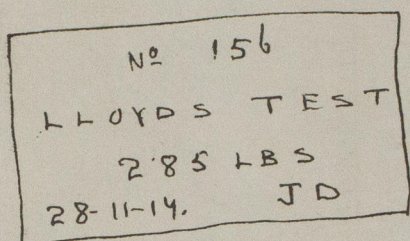 Nº 156
LLOYDS TEST
2·85 LBS
28-11-14. JD